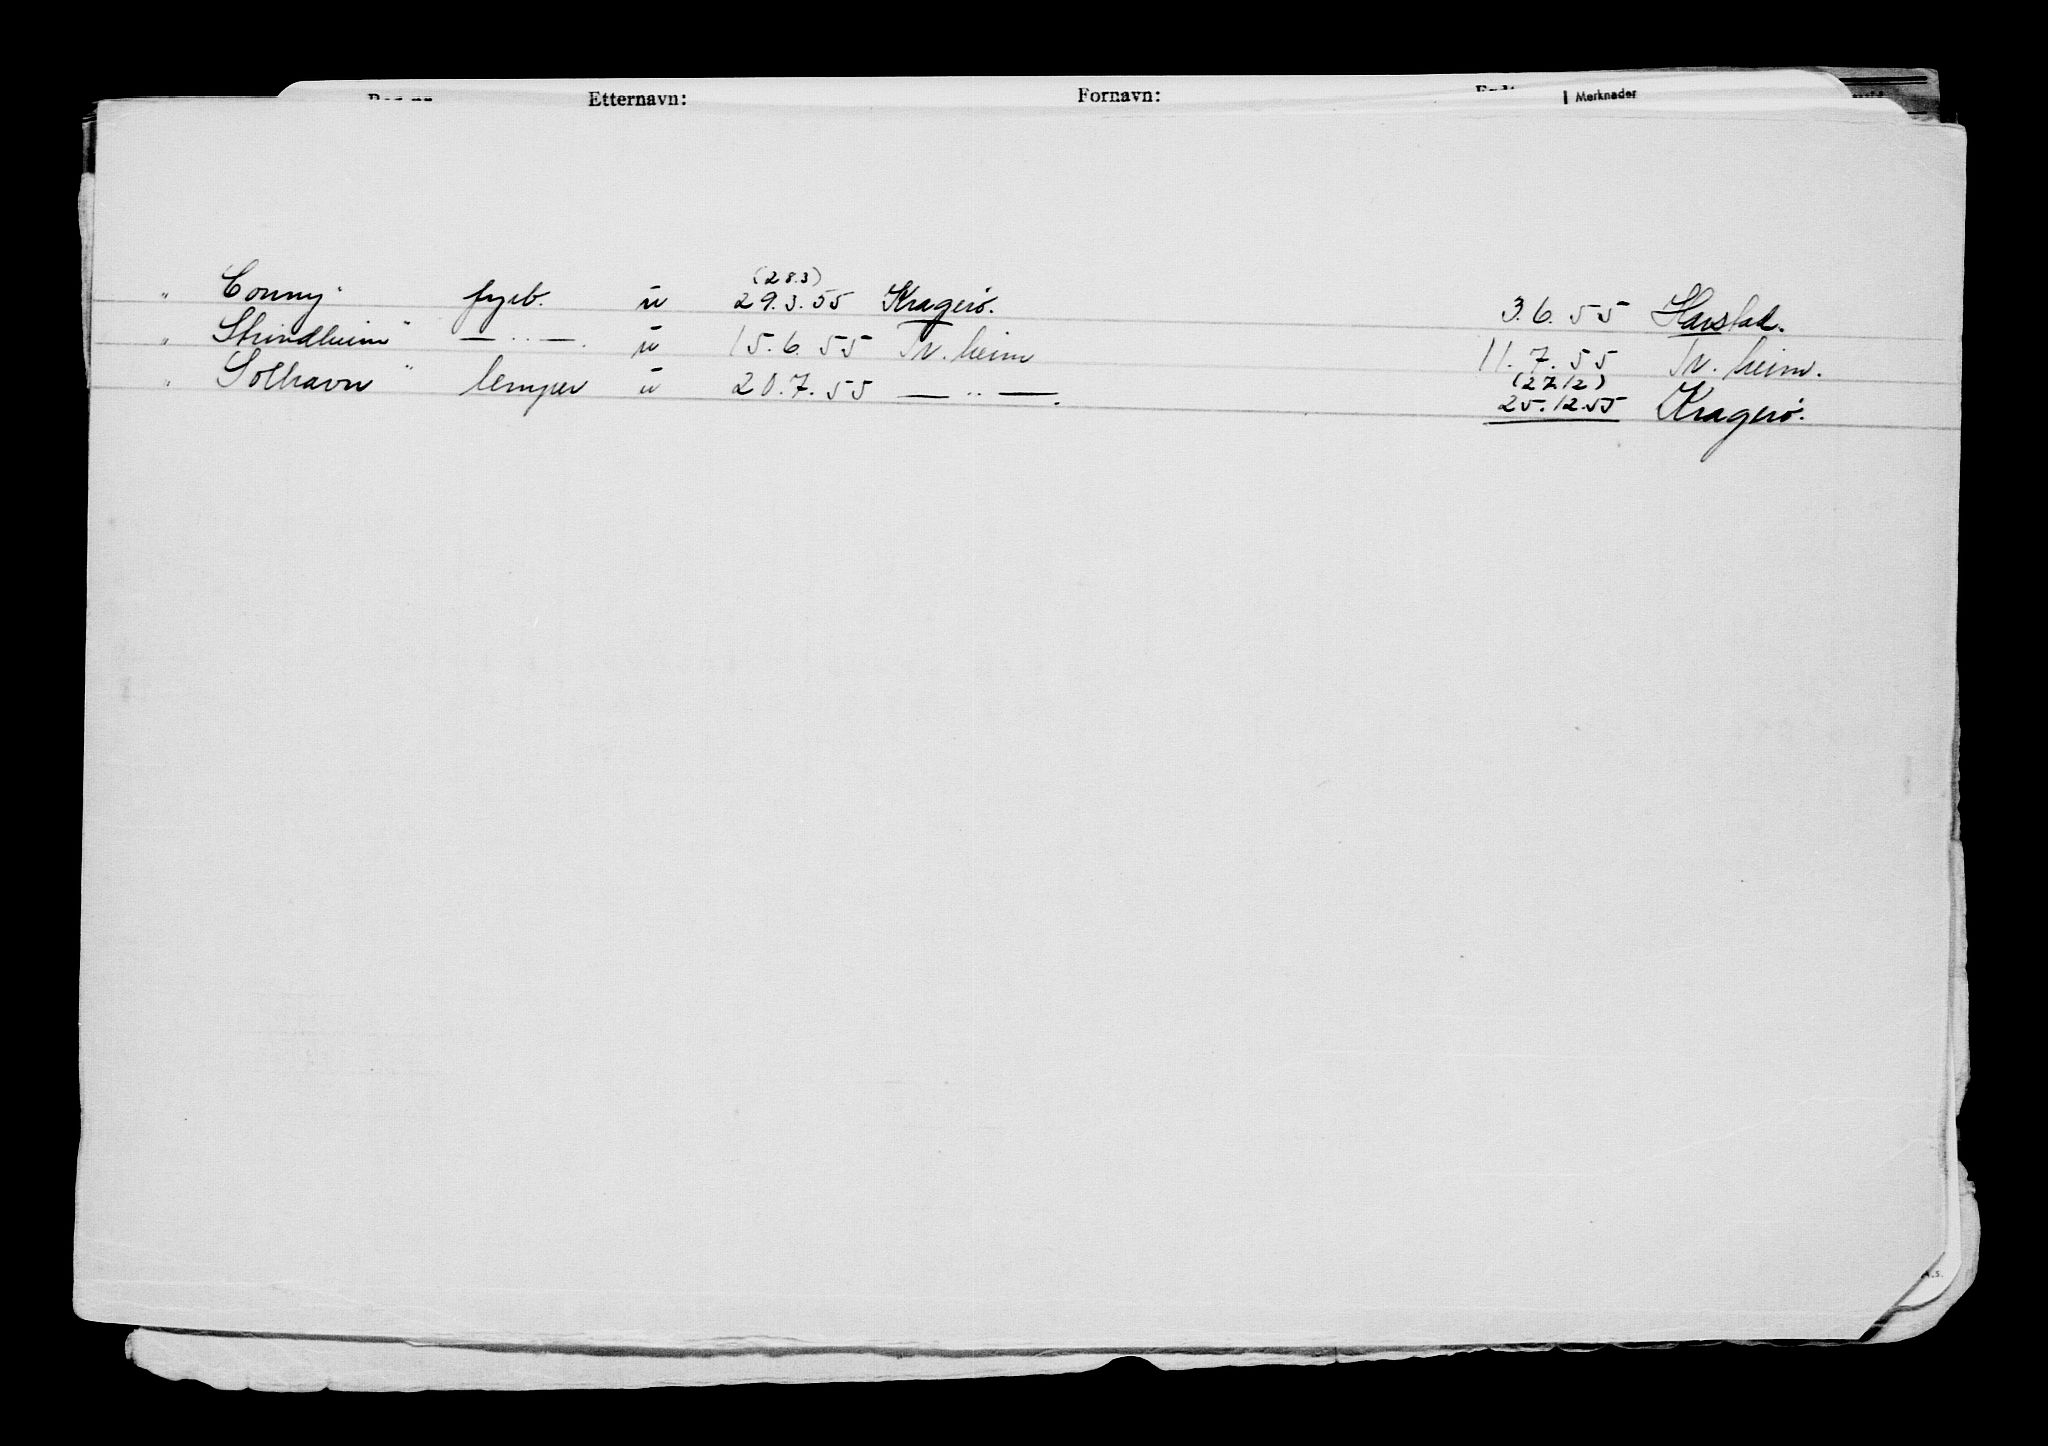 Etternavn: Fornavn: Merknader
(28.3)
" Conny" fyrb. u 29.3.55 Kragerö. 3.6.55 Harstad.
" Strindheim" — .. —. u 15.6.55 Tr.heim 11.7.55 Tr.heim.
(27.12)
" Solhavn" lemper u 20.7.55 — .. —. 25.12.55 Kragerö.
A.s.